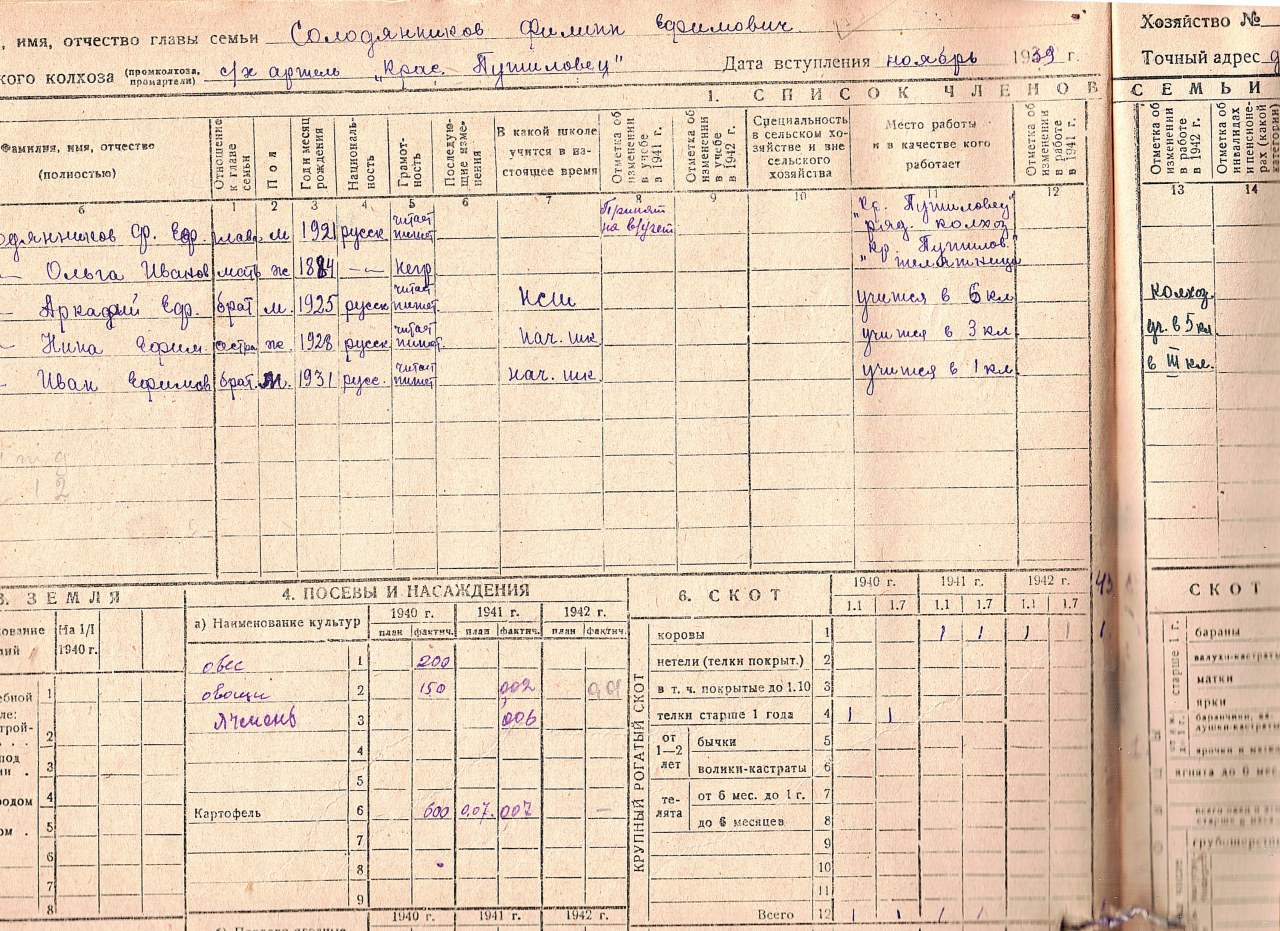 , имя, отчество главы семьи Солодянников Филипп Ефимович
кого колхоза (промколхоза, промартели) с/х артель „Крас. Путиловец" Дата вступления ноябрь 1939 г.
Хозяйство №
Точный адрес
1. СПИСОК ЧЛЕНОВ СЕМЬИ
Фамилия, имя, отчество (полностью)
Отношение к главе семьи
Пол
Год и месяц рождения
Националь-ность
Грамот-ность
Последую-щие изме-нения
В какой школе учится в на-стоящее время
Отметка об изменении в учебе в 1941 г.
Отметка об изменении в учебе в 1942 г.
Специальность в сельском хо-зяйстве и вне сельского хозяйства
Место работы и в качестве кого работает
Отметка об изменении в работе в 1941 г.
Отметка об изменении в работе в 1942 г.
Отметка об инвалидах и пенсионе-рах (какой категории)
б 1 2 3 4 5 6 7 8 9 10 11 12 13 14
одянников Ф. Еф. глава м 1921 русск читает пишет Принят на в/учет "Кр. Путиловец" ряд. колхоз
—— Ольга Иванов мать ж 1884 —"— негр "Кр. Путилов. телятница
— Аркадий Еф. брат м. 1925 русск читает пишет. НСШ учится в 6 кл колхоз.
— Нина Ефим. сестра ж. 1928 русск читает пишет. нач. шк. учится в 3 кл. уч. в 5 кл.
— Иван Ефимов брат. м. 1931 русс. читает пишет нач. шк. учится в 1 кл в III кл.
3. ЗЕМЛЯ
На 1/I 1940 г.
1
2
3
4
5
6
7
8
4. ПОСЕВЫ И НАСАЖДЕНИЯ
а) Наименование культур 1940 г. 1941 г. 1942 г.
план фактич. план фактич. план фактич.
овес 1 200
овощи 2 150 002
Ячмень 3 006
4
5
Картофель 6 600 0,07. 007 —
7
8
9
1940 г. 1941 г. 1942 г.
6. СКОТ
1940 г. 1941 г. 1942 г. 43
1.1 1.7 1.1 1.7 1.1 1.7
КРУПНЫЙ РОГАТЫЙ СКОТ
коровы 1 1 1 1 1 1
нетели (телки покрыт.) 2
в т. ч. покрытые до 1.10 3
телки старше 1 года 4 1 1
от 1—2 лет
бычки 5
волики-кастраты 6
те-лята
от 6 мес. до 1 г. 7
до 6 месяцев 8
9
10
11
Всего 12 1 1 1 1
СКОТ
старше 1 г.
бараны
валухи-кастраты
матки
ярки
ягнята до 6 мес